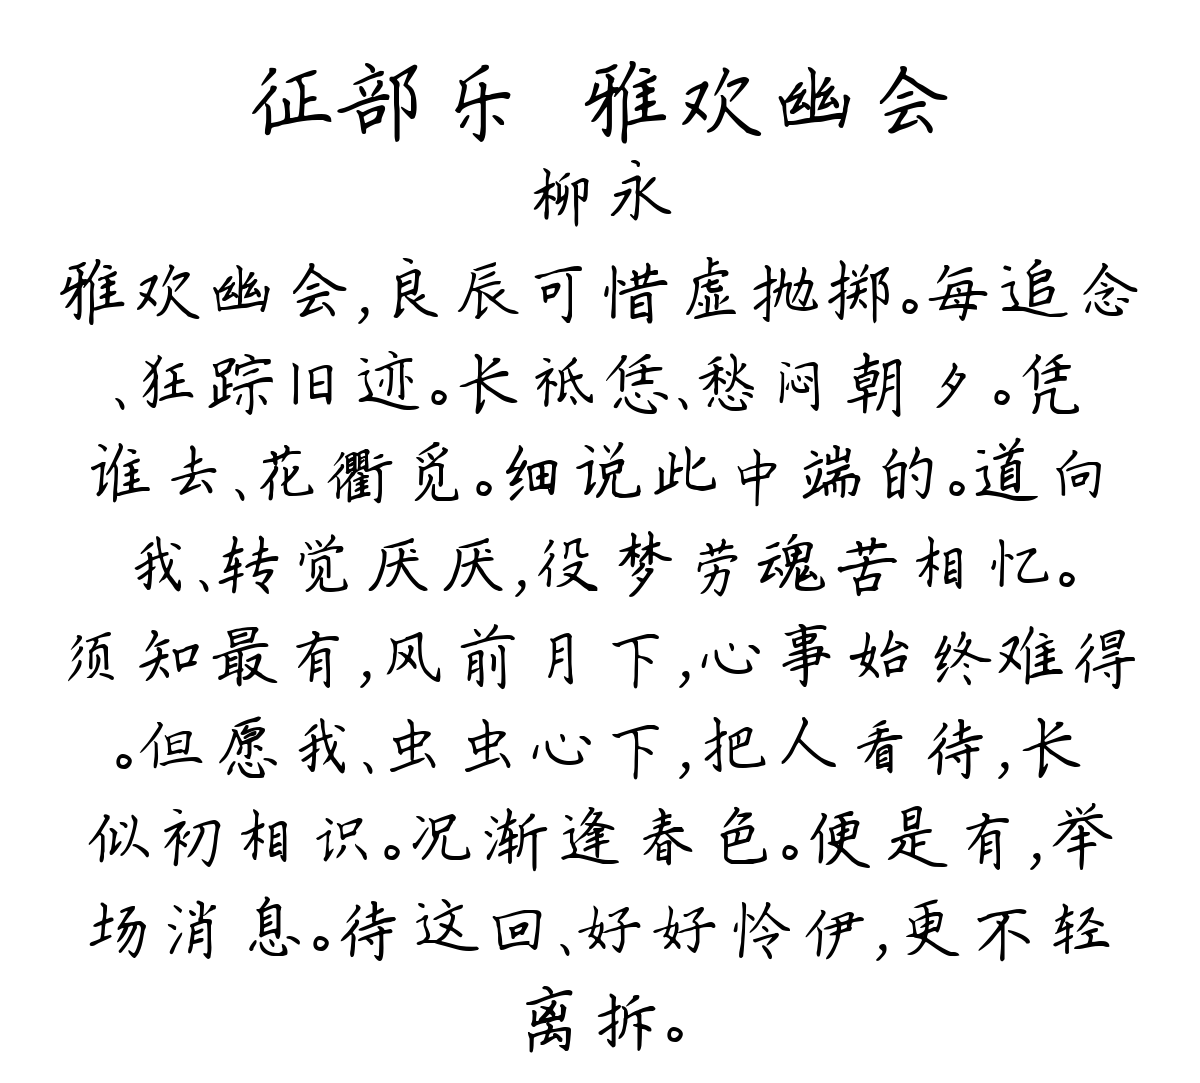 征部乐 雅欢幽会
柳永
雅欢幽会,良辰可惜虚抛掷。每追念
、狂踪旧迹。长祗恁、愁闷朝夕。凭
谁去、花衢觅。细说此中端的。道向
我、转觉厌厌,役梦劳魂苦相忆。
须知最有,风前月下,心事始终难得
。但愿我、虫虫心下,把人看待,长
似初相识。况渐逢春色。便是有,举
场消息。待这回、好好怜伊,更不轻
离拆。